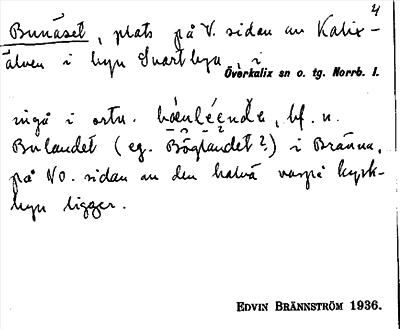 4
Bunäset, plats på V. sidan av Kalix-
älven i byn Svartbyn, i
Överkalix sn o. tg. Norrb. l.
ingå i ortn. bf. n.
Bulandet (eg. Böglandet?) i Bränna,
på NO. sidan av den halvö varpå kyrk-
byn ligger.
EDVIN BRÄNNSTRÖM 1936.